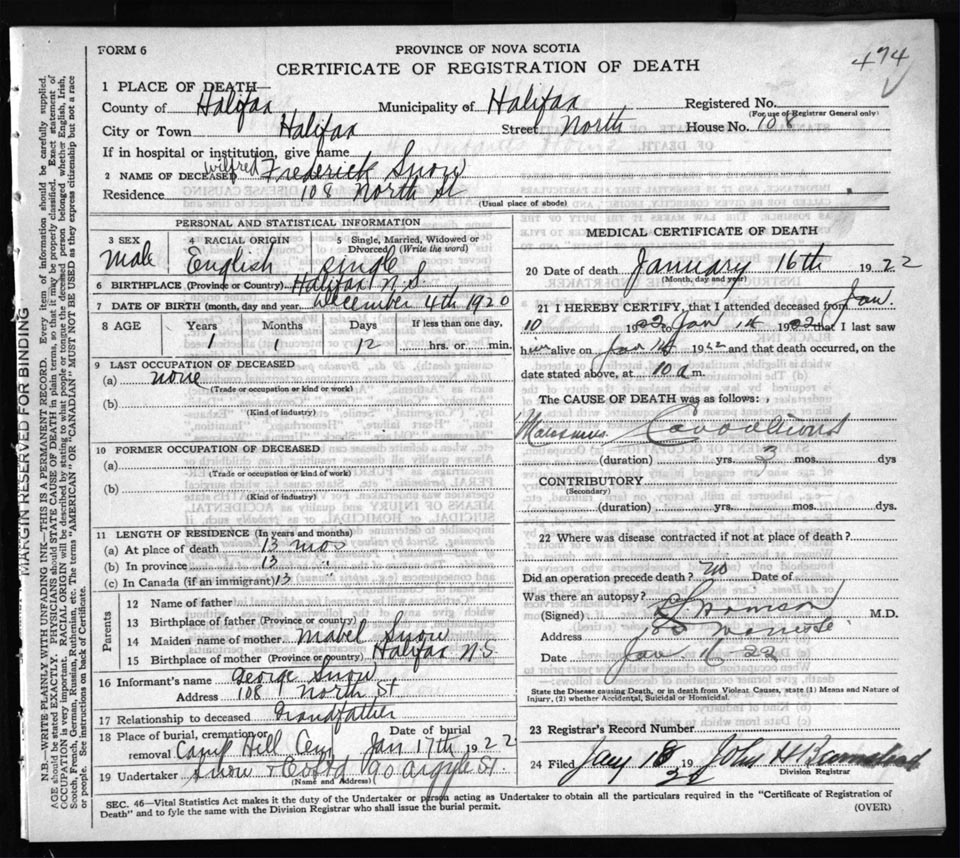 474
FORM 6
PROVINCE OF NOVA SCOTIA
CERTIFICATE OF REGISTRATION OF DEATH
1 PLACE OF DEATH—
County of Halifax Municipality of Halifax Registered No.
(For use of Registrar General only)
City or Town Halifax Street North House No. 108
If in hospital or institution, give name
2 NAME OF DECEASED Wilfred Frederick Snow
Residence 108 North St
(Usual place of abode)
PERSONAL AND STATISTICAL INFORMATION
3 SEX 4 RACIAL ORIGIN 5 Single, Married, Widowed or Divorced (Write the word)
Male English Single
6 BIRTHPLACE (Province or Country) Halifax N.S.
7 DATE OF BIRTH (month, day and year December 4th 1920
8 AGE Years Months Days If less than one day,
1 1 12 hrs. or min.
9 LAST OCCUPATION OF DECEASED
(a) none
(Trade or occupation or kind or work)
(b)
(Kind of industry)
10 FORMER OCCUPATION OF DECEASED
(a)
(Trade or occupation or kind of work)
(b)
(Kind of industry)
11 LENGTH OF RESIDENCE (In years and months)
(a) At place of death 13 mos
(b) In province 13 "
(c) In Canada (if an immigrant) 13 "
Parents
12 Name of father
13 Birthplace of father (Province or country)
14 Maiden name of mother Mabel Snow
15 Birthplace of mother (Province or Country) Halifax N.S.
16 Informant's name George Snow
Address 108 North St
17 Relationship to deceased Grandfather
18 Place of burial, cremation or removal Camp Hill Cem Date of burial Jan 17th 1922
19 Undertaker Snow & Co Ltd 90 Argyle St
(Name and Address)
MEDICAL CERTIFICATE OF DEATH
20 Date of death January 16th 1922
(Month, day and year)
21 I HEREBY CERTIFY, that I attended deceased from Jan
10 1922 to Jan 14 1922 that I last saw
him alive on Jan 14 1922 and that death occurred, on the
date stated above, at 10 a m.
The CAUSE OF DEATH was as follows:
(duration) yrs. 3 mos. dys
CONTRIBUTORY
(Secondary)
(duration) yrs. mos. dys
22 Where was disease contracted if not at place of death?
Did an operation precede death? no Date of
Was there an autopsy?
(Signed) M.D.
Address
Date Jan 22
State the Disease causing Death, or in death from Violent Causes, state (1) Means and Nature of
Injury, (2) whether Accidental, Suicidal or Homicidal.
23 Registrar's Record Number
24 Filed Jany 18 1922 John H
Division Registrar
SEC. 46—Vital Statistics Act makes it the duty of the Undertaker or person acting as Undertaker to obtain all the particulars required in the "Certificate of Registration of
Death" and to fyle the same with the Division Registrar who shall issue the burial permit.
(OVER)
MARGIN RESERVED FOR BINDING
N.B.—WRITE PLAINLY WITH UNFADING INK—THIS IS A PERMANENT RECORD. Every item of information should be carefully supplied.
AGE should be stated EXACTLY. PHYSICIANS should STATE CAUSE OF DEATH in plain terms, so that it may be properly classified. Exact statement of
OCCUPATION is very important. RACIAL ORIGIN will be described by stating to what people or tongue the deceased person belonged whether English, Irish,
Scotch, French, German, Russian, Ruthenian, etc. The terms "AMERICAN" OR "CANADIAN" MUST NOT BE USED as they express citizenship but not a race
or people. See instructions on back of Certificate.